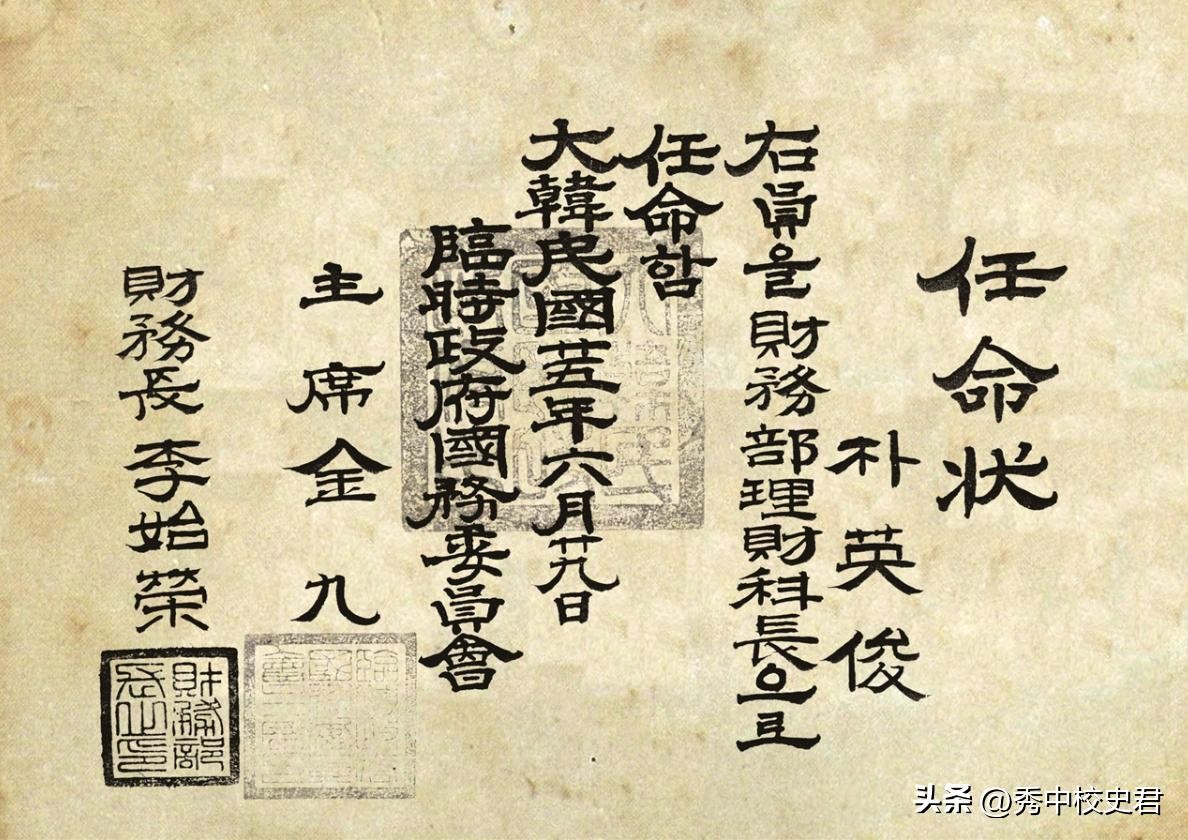 任命状
朴英俊
右員을財務部理財科長으로
任命함
大韓民國卄五年六月卄九日
臨時政府國務委員會
主席金九
財務長李始榮
財務部
之印
头条 @秀中校史君